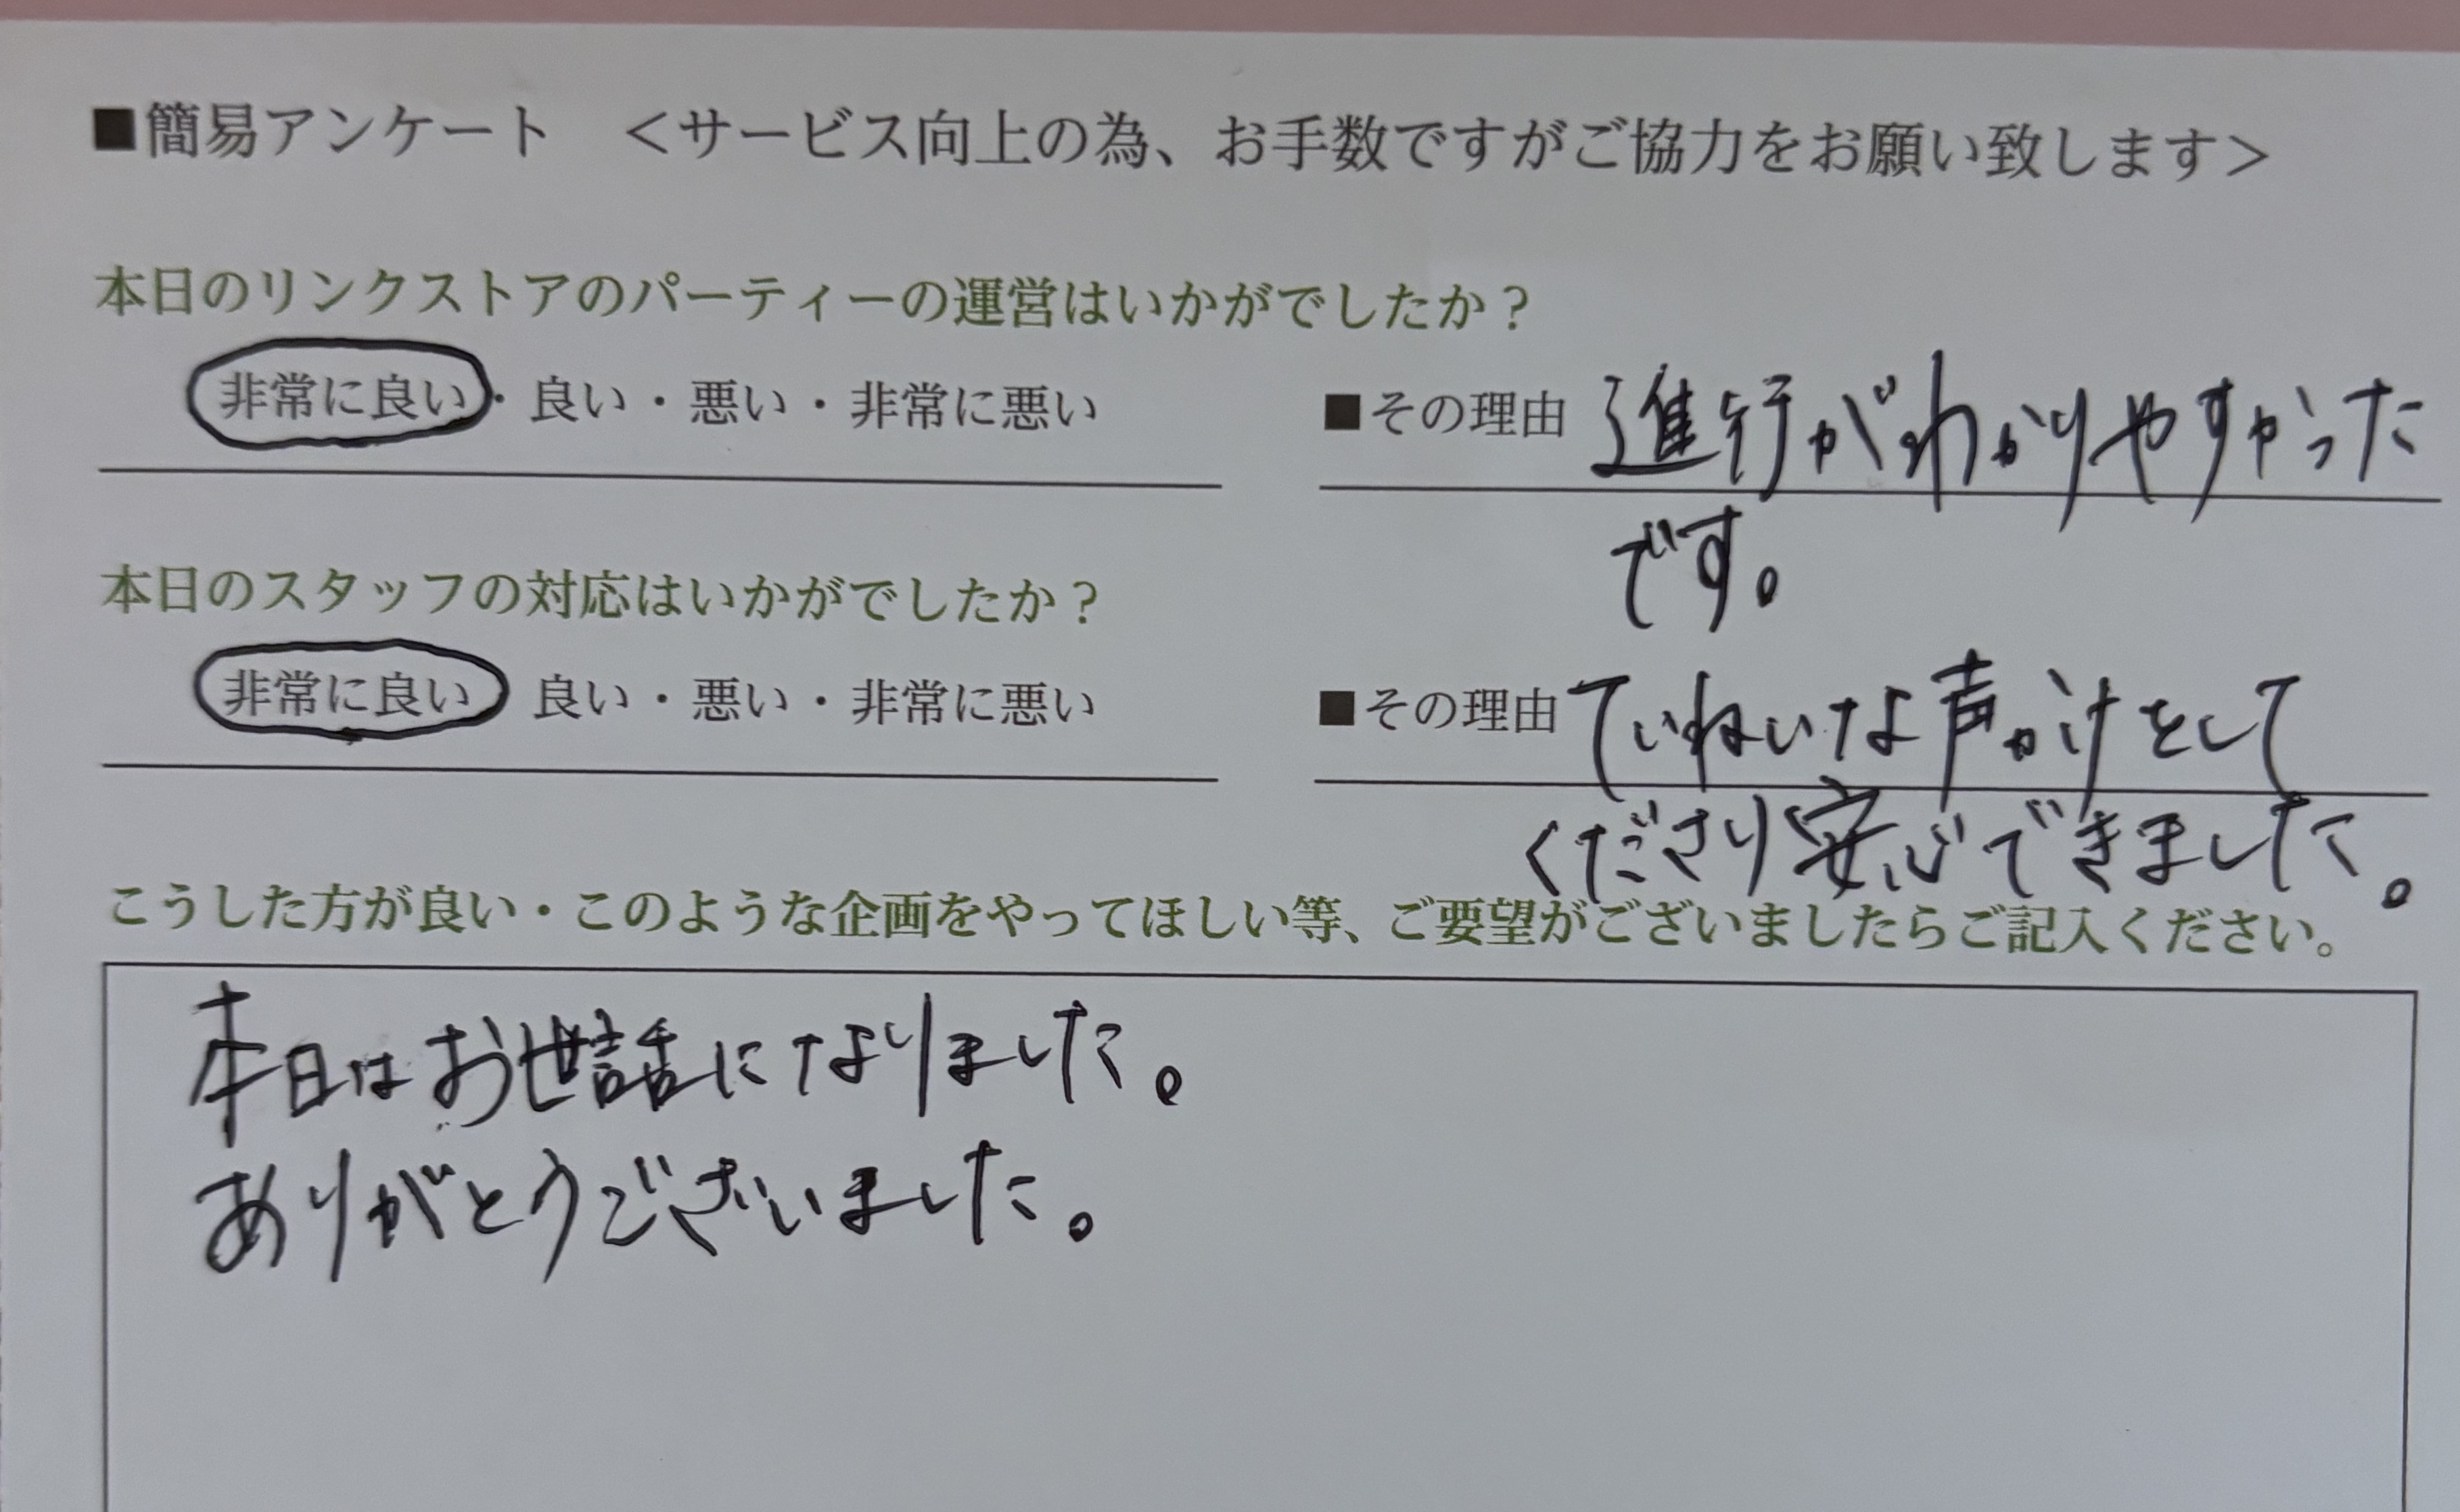 ■簡易アンケート　＜サービス向上の為、お手数ですがご協力をお願い致します＞
本日のリンクストアのパーティーの運営はいかがでしたか？
非常に良い・良い・悪い・非常に悪い
■その理由 進行がわかりやすかった
です。
本日のスタッフの対応はいかがでしたか？
非常に良い 良い・悪い・非常に悪い
■その理由 ていねいな声かけをして
くださり安心できました。
こうした方が良い・このような企画をやってほしい等、ご要望がございましたらご記入ください。
本日はお世話になりました。
ありがとうございました。